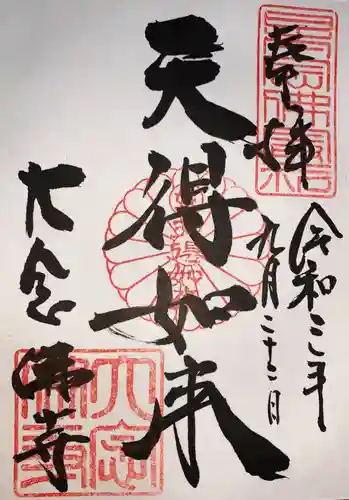 奉拝
令和三年
九月二十二日
天得如来
大念佛寺